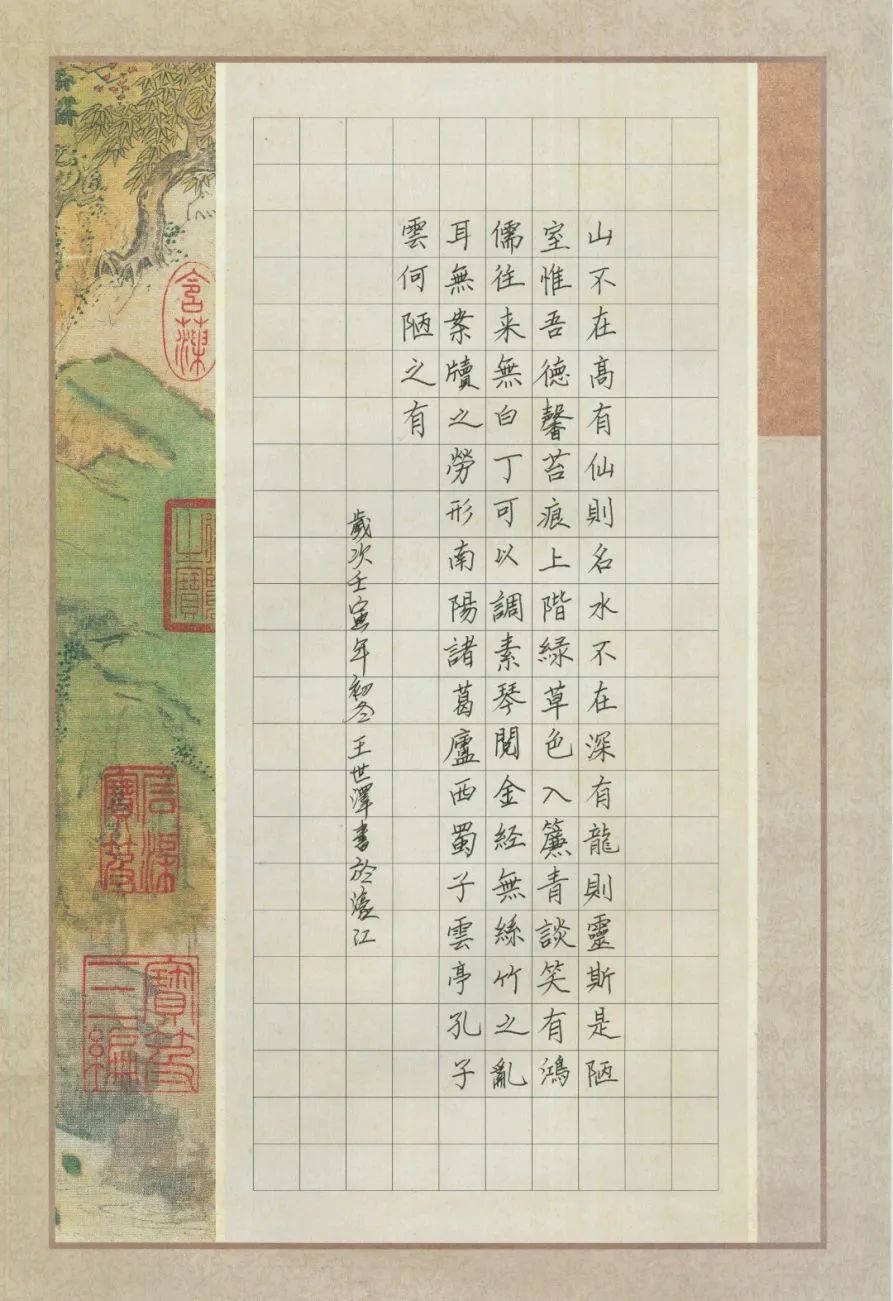 山不在高有仙則名水不在深有龍則靈斯是陋
室惟吾德馨苔痕上階緑草色入簾青談笑有鴻
儒往来無白丁可以調素琴閲金経無絲竹之亂
耳無案牘之勞形南陽諸葛廬西蜀子雲亭孔子
雲何陋之有
歲次壬寅年初冬王世澤書於濠江
之寶
石渠寶笈
寶笈三編